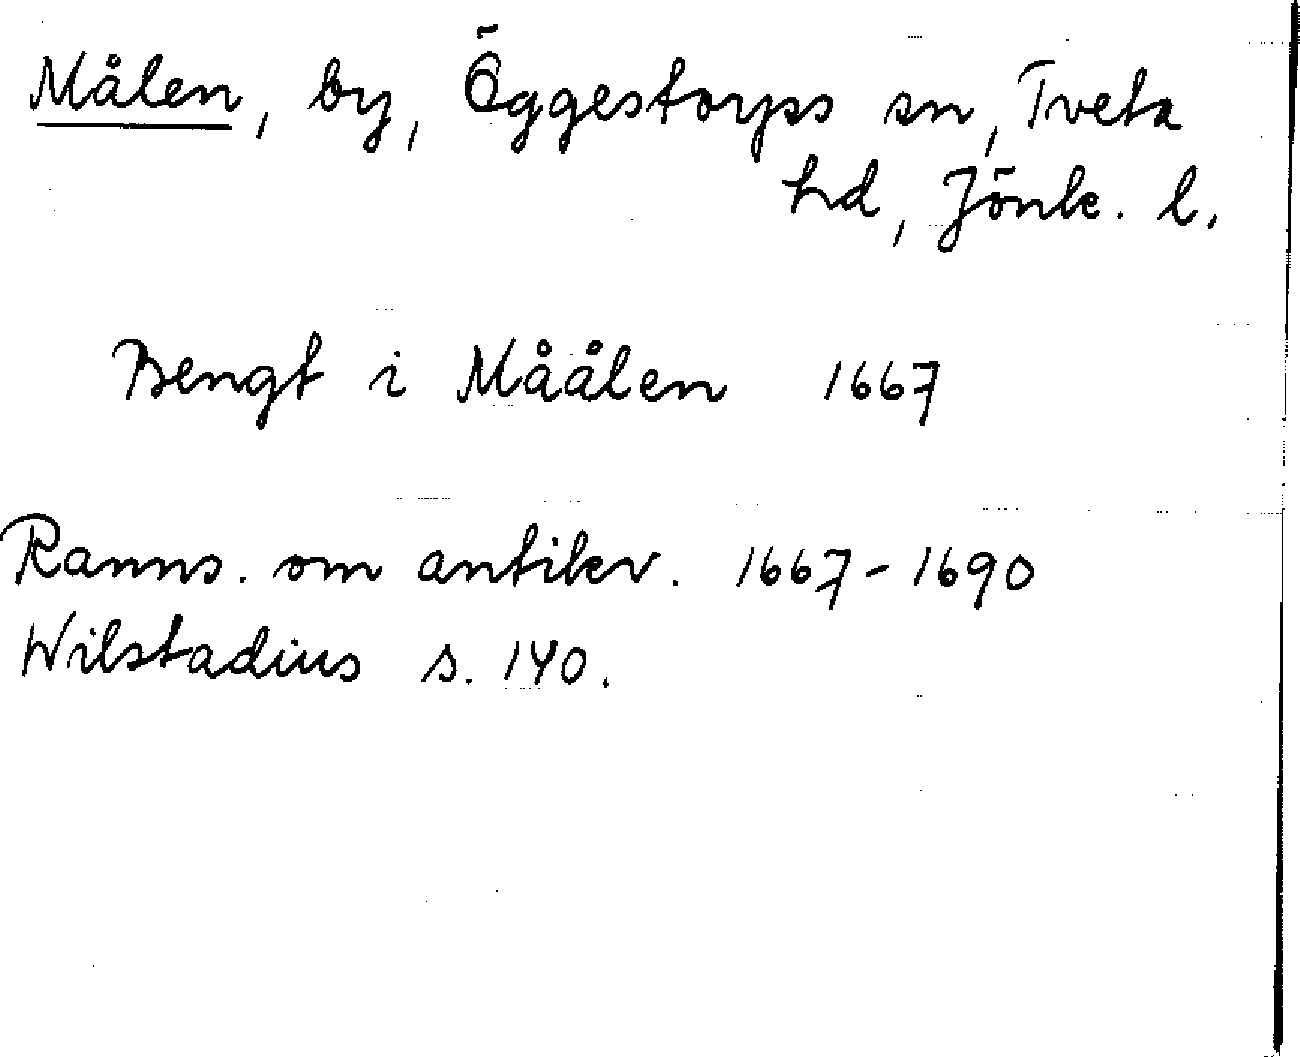 Målen, by, Öggestorps sn, Tveta
hd, Jönk. l.
Bengt i Måålen 1667
Ranns. om antikv. 1667-1690
Wilstadius s. 140.